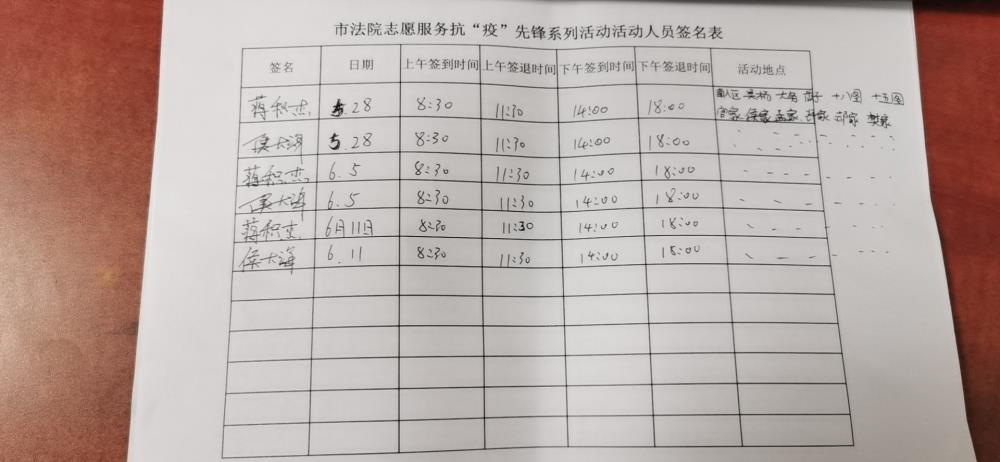 市法院志愿服务抗“疫”先锋系列活动活动人员签名表
签名 日期 上午签到时间 上午签退时间 下午签到时间 下午签退时间 活动地点
蒋积杰 5.28 8:30 11:30 14:00 18:00 吴桥 大名 十八图 十五图
侯大海 5.28 8:30 11:30 14:00 18:00
蒋积杰 6.5 8:30 11:30 14:00 18:00
侯大海 6.5 8:30 11:30 14:00 18:00
蒋积杰 6月11日 8:30 11:30 14:00 18:00
侯大海 6.11 8:30 11:30 14:00 18:00